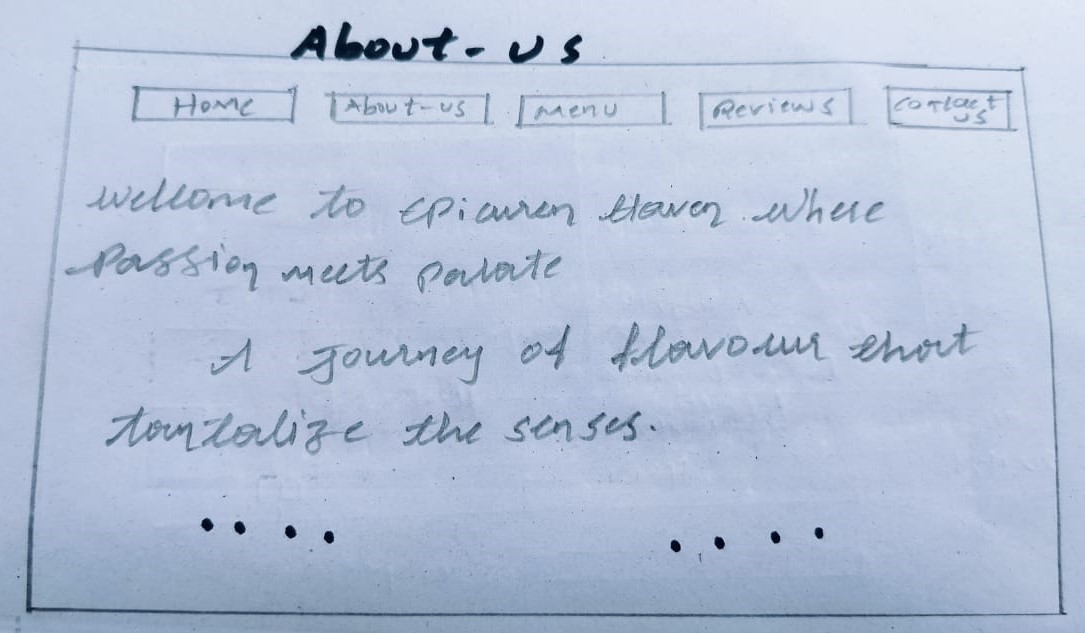 About-us
Home About-us Menu Reviews Contact us
wellcome to Epicuren Haven where
Passion meets palate
A Journey of flavour that
tantalize the senses.